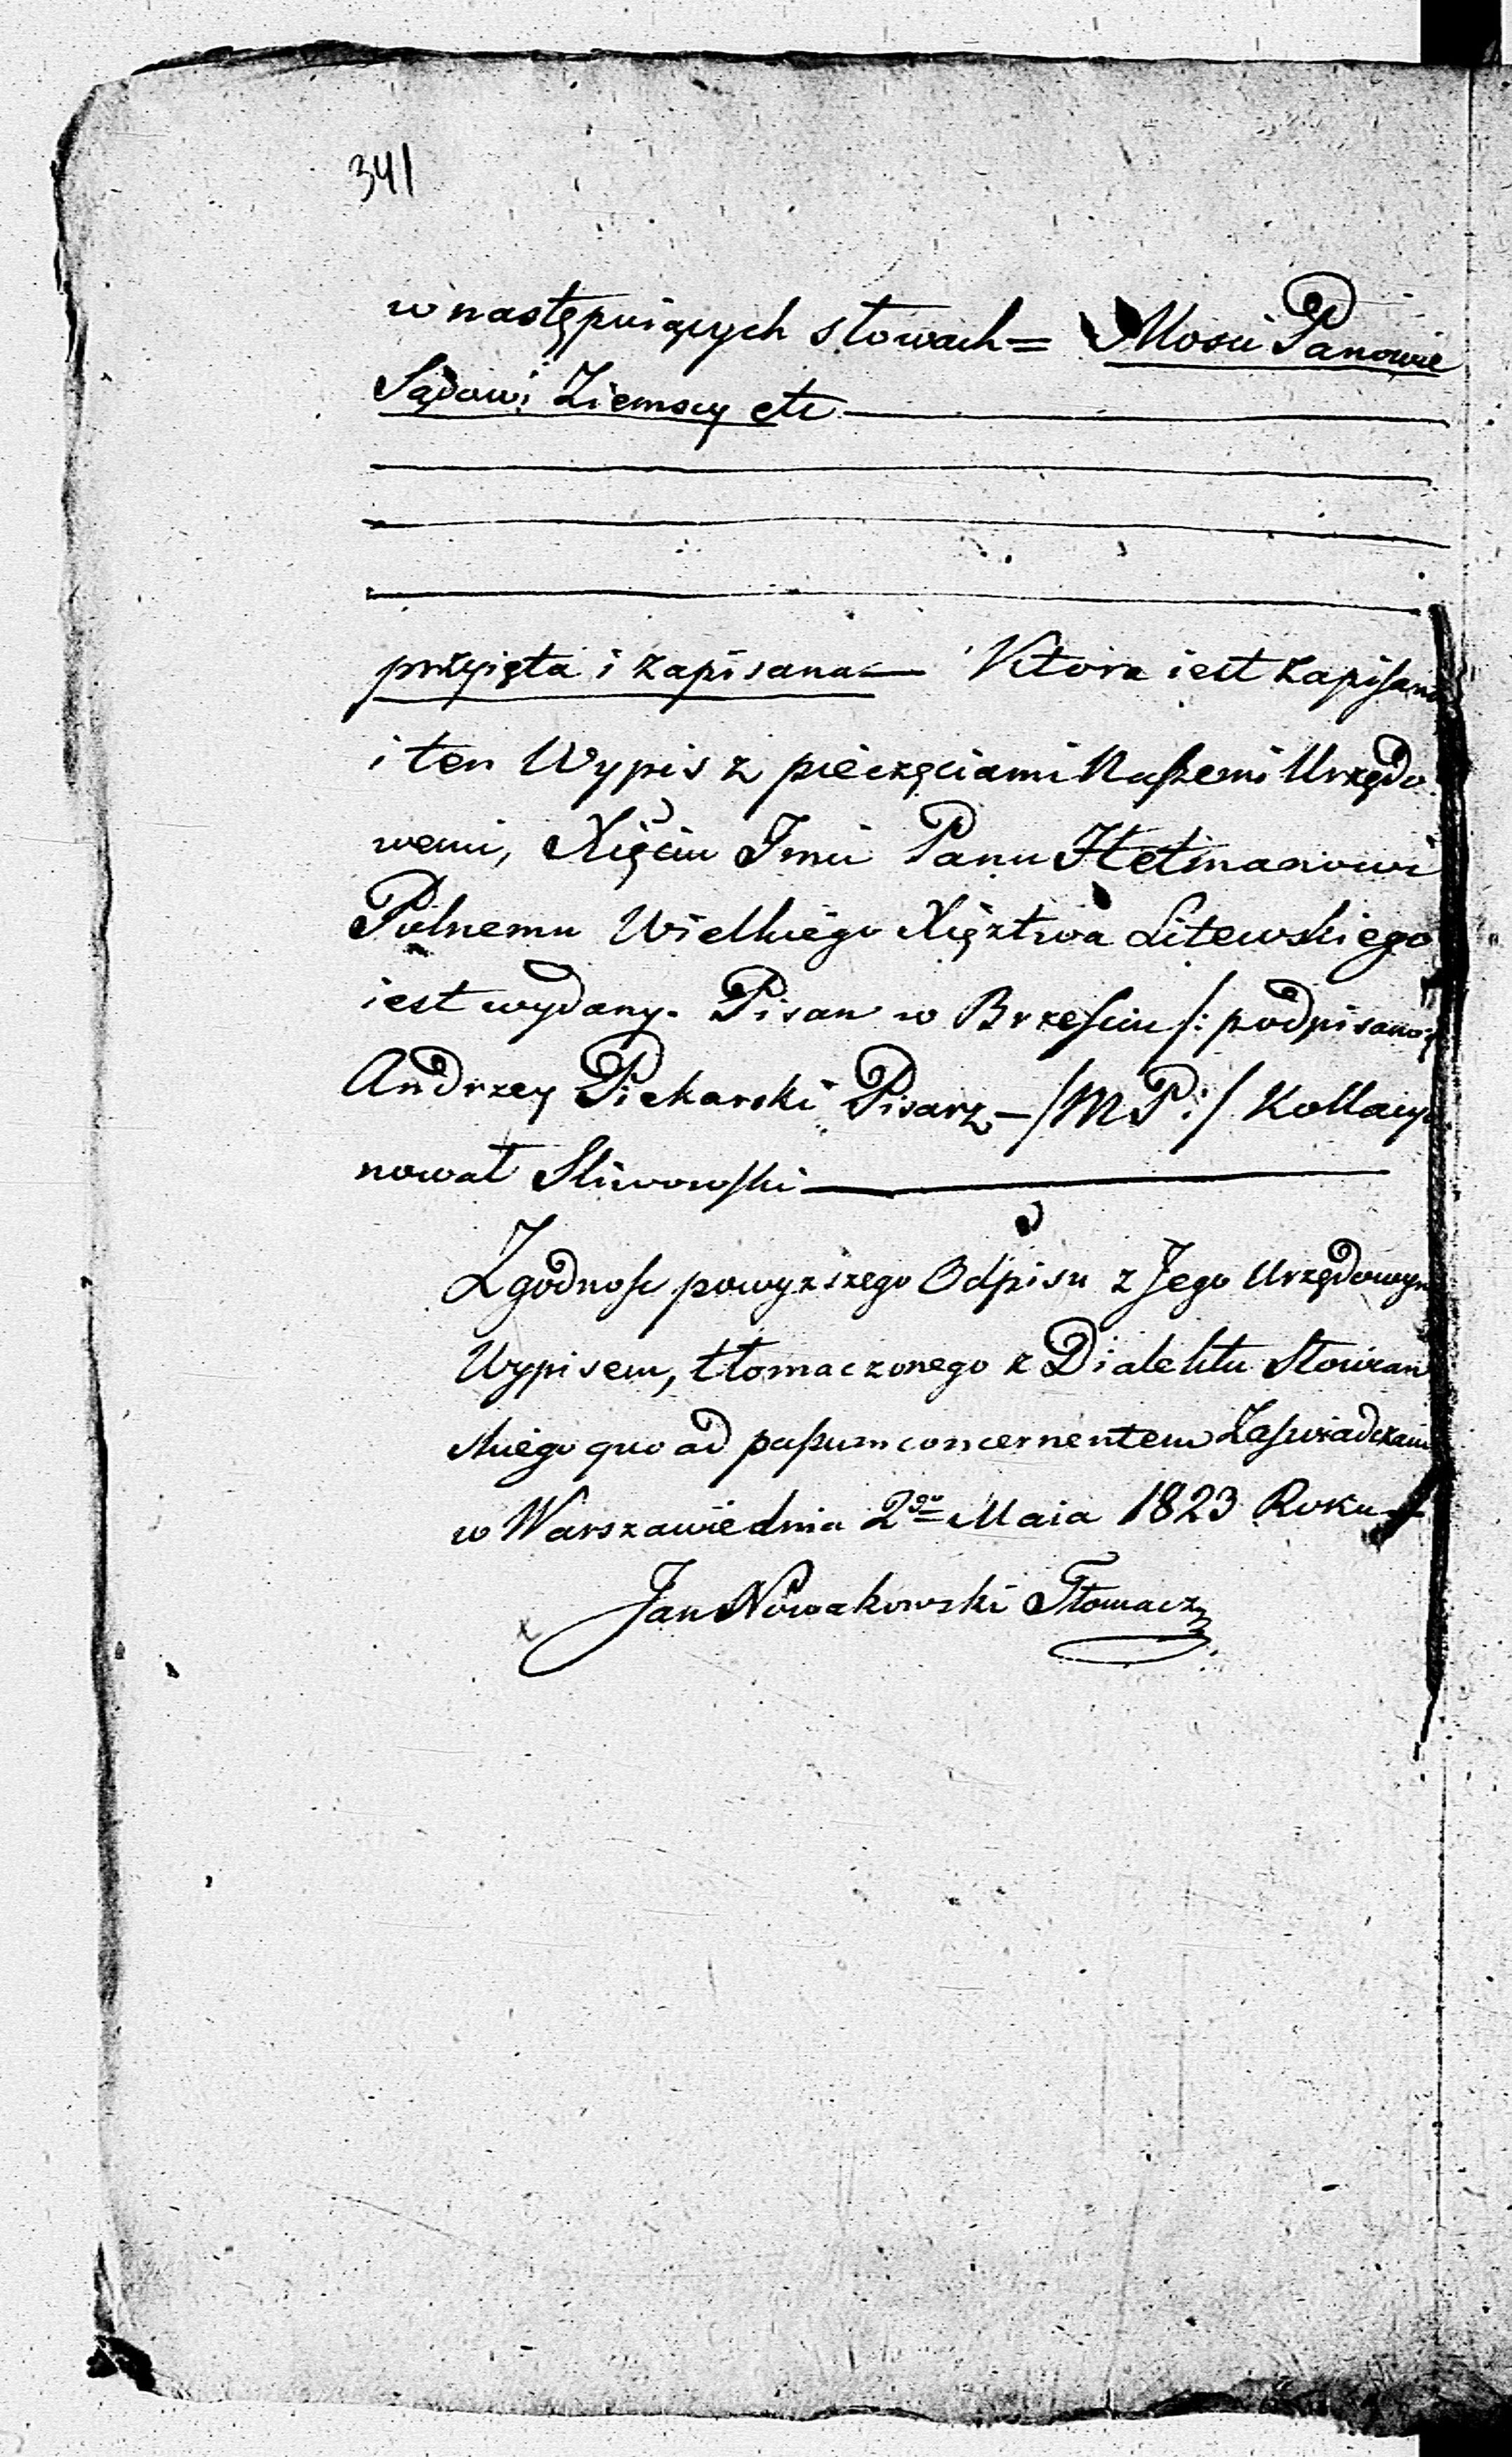 341
w następuiących słowach = Mosci Panowie
Sądowi Ziemscy etc
przyięta i zapisana — Ktora iest zapisana
i ten Wypis z pieczęciami Naszemi Urzędo
wemi, Xięciu Jmci Panu Hetmanowi
Polnemu Wielkiego Xięztwa Litewskiego
iest wydany. Pisan w Brzesciu /: podpisano :/
Andrzey Piekarski Pisarz — /MP:/ Kollacyo
nował Sliwowski
Zgodnosc powyzszego Odpisu z Jego Urzędowym
Wypisem, tłomaczonego z Dialektu Słowian
skiego quo ad passum concernentem Zaswiadczam
w Warszawie dnia 2go Maia 1823 Roku
Jan Nowakowski Tłomacz